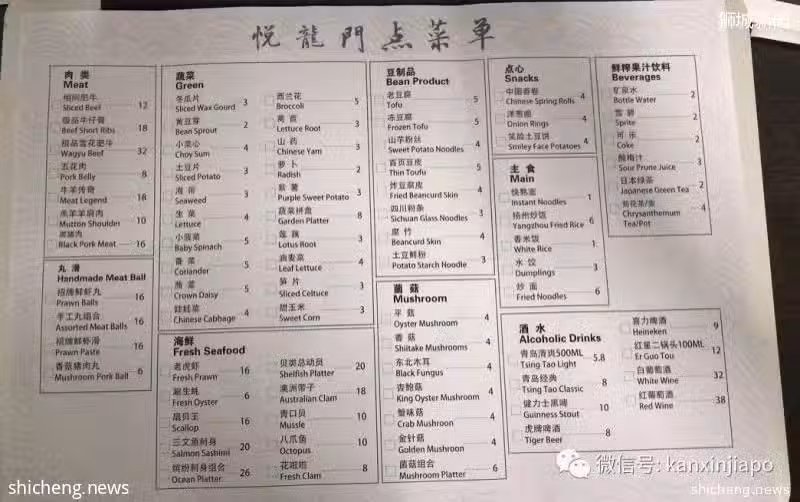 狮城新闻
悦龍門点菜单
肉 类
Meat
Sliced Beef 12
极品牛仔骨
Beef Short Ribs 18
极品雪花肥牛
Wagyu Beef 32
五花肉
Pork Belly 8
牛羊传奇
Meat Legend 18
羔羊羊肩肉
Mutton Shoulder 10
黑猪肉
Black Pork Meat 16
丸 滑
Handmade Meat Ball
招牌鲜虾丸
Prawn Balls 16
手工丸组合
Assorted Meat Balls 16
招牌鲜虾滑
Prawn Paste 16
香菇猪肉丸
Mushroom Pork Ball 6
蔬菜
Green
冬瓜片
Sliced Wax Gourd 3
黄豆芽
Bean Sprout 2
小菜心
Choy Sum 4
土豆片
Sliced Potato 3
海带
Seaweed 3
生 菜
Lettuce 4
小菠菜
Baby Spinach 5
香 菜
Coriander 5
茼 蒿
Crown Daisy 5
娃娃菜
Chinese Cabbage 4
西兰花
Broccoli 5
莴 苣
Lettuce Root 3
山 药
Chinese Yam 3
萝 卜
Radish 2
紫 薯
Purple Sweet Potato 3
蔬菜拼盘
Garden Platter 8
莲 藕
Lotus Root 3
油麦菜
Leaf Lettuce 4
笋 片
Sliced Celtuce 3
甜玉米
Sweet Corn 3
海鲜
Fresh Seafood
老虎虾
Fresh Prawn 16
Fresh Oyster 6
扇贝王
Scallop 16
三文鱼刺身
Salmon Sashimi 20
缤纷刺身组合
Ocean Platter 26
贝类总动员
Shelfish Platter 20
澳洲带子
Australian Clam 18
青口贝
Mussle 10
八爪鱼
Octopus 10
花蛤啦
Fresh Clam 8
豆制品
Bean Product
老豆腐
Tofu 5
冻豆腐
Frozen Tofu 5
山芋粉丝
Sweet Potato Noodles 4
百页豆皮
Thin Toufu 5
炸豆腐皮
Fried Beancurd Skin 4
四川粉条
Sichuan Glass Noodles 3
腐 竹
Beancurd Skin 4
土豆鲜粉
Potato Starch Noodle 3
菌 菇
Mushroom
平 菇
Oyster Mushroom 4
香 菇
Shiitake Mushrooms 4
东北木耳
Black Fungus 4
杏鲍菇
King Oyster Mushroom 4
蟹味菇
Crab Mushroom 4
金针菇
Golden Mushroon 4
菌菇组合
Mushroom Platter 6
点心
Snacks
中国春卷
Chinese Spring Rolls 4
洋葱圈
Onion Rings 4
笑脸土豆饼
Smiley Face Potatoes 4
主 食
Main
快熟面
Instant Noodles 1
扬州炒饭
Yangzhou Fried Rice 6
香米饭
White Rice 1
水 饺
Dumplings 3
炒 面
Fried Noodles 6
鲜榨果汁饮料
Beverages
矿泉水
Bottle Water 2
雪 碧
Sprite 2
可 乐
Coke 2
酸梅汁
Sour Prune Juice 3
日本绿茶
Japanese Green Tea 2
菊花茶/壶
Chrysanthemum 4
Tea/Pot
酒 水
Alcoholic Drinks
青岛清爽500ML
Tsing Tao Light 5.8
青岛经典
Tsing Tao Classic 8
健力士黑啤
Guinness Stout 10
虎牌啤酒
Tiger Beer 8
喜力啤酒
Heineken 9
红星二锅头100ML
Er Guo Tou 12
白葡萄酒
White Wine 32
红葡萄酒
Red Wine 38
微信号: kanxinjiapo
shicheng.news
shicheng.news